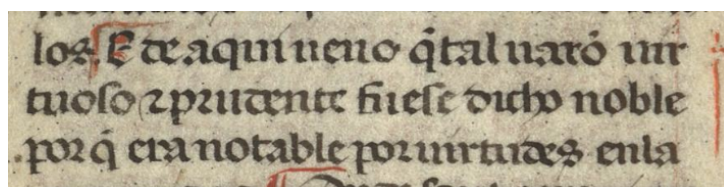 los. E de aqui ueno q̃ tal uarõ uir
tuoso ⁊ prudente fuese dicho noble
por q̃ era notable por uirtudes enla